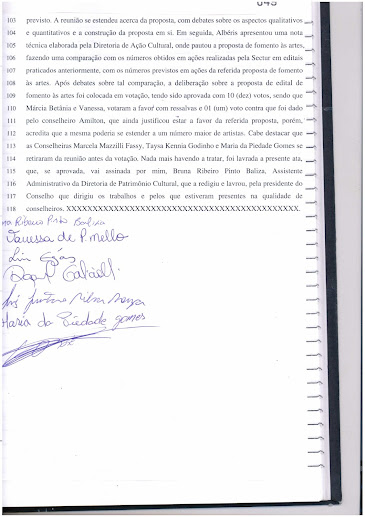 049
103 previsto. A reunião se estendeu acerca da proposta, com debates sobre os aspectos qualitativos
104 e quantitativos e a construção da proposta em si. Em seguida, Albéris apresentou uma nota
105 técnica elaborada pela Diretoria de Ação Cultural, onde pautou a proposta de fomento às artes,
106 fazendo uma comparação com os números obtidos em ações realizadas pela Sectur em editais
107 praticados anteriormente, com os números previstos em ações da referida proposta de fomento
108 às artes. Após debates sobre tal comparação, a deliberação sobre a proposta de edital de
109 fomento as artes foi colocada em votação, tendo sido aprovada com 10 (dez) votos, sendo que
110 Márcia Betânia e Vanessa, votaram a favor com ressalvas e 01 (um) voto contra que foi dado
111 pelo conselheiro Amilton, que ainda justificou estar a favor da referida proposta, porém,
112 acredita que a mesma poderia se estender a um número maior de artistas. Cabe destacar que
113 as Conselheiras Marcela Mazzilli Fassy, Taysa Kennia Godinho e Maria da Piedade Gomes se
114 retiraram da reunião antes da votação. Nada mais havendo a tratar, foi lavrada a presente ata,
115 que, se aprovada, vai assinada por mim, Bruna Ribeiro Pinto Baliza, Assistente
116 Administrativo da Diretoria de Patrimônio Cultural, que a redigiu e lavrou, pela presidente do
117 Conselho que dirigiu os trabalhos e pelos que estiveram presentes na qualidade de
118 conselheiros. XXXXXXXXXXXXXXXXXXXXXXXXXXXXXXXXXXXXXXXXXXX.
na Ribeiro Pinto Baliza
Vanessa de P. Mello
Maria da Piedade gomes